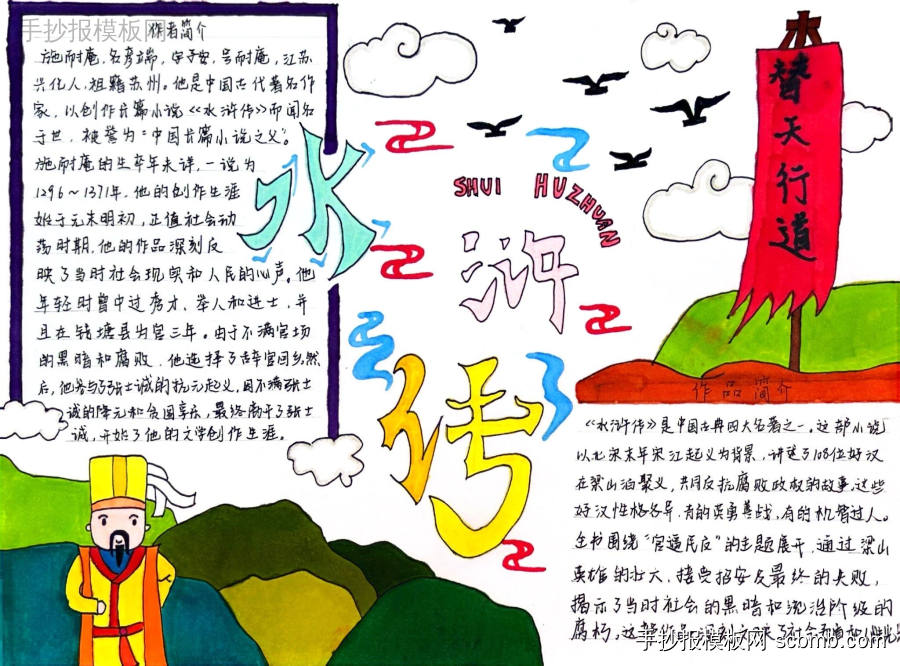 手抄报模板网
作者简介
施耐庵,名彦端,字子安,号耐庵,江苏
兴化人,祖籍苏州。他是中国古代著名作
家,以创作长篇小说《水浒传》而闻名
于世,被誉为“中国长篇小说之父”。
施耐庵的生卒年未详,一说为
1296~1371年,他的创作生涯
始于元末明初,正值社会动
荡时期,他的作品深刻反
映了当时社会现实和人民的心声。他
年轻时曾中过秀才、举人和进士,并
且在钱塘县为官三年。由于不满官场
的黑暗和腐败,他选择了辞官回乡,然
后,他参与了张士诚的抗元起义,因不满张士
诚的降元和贪图享乐,最终离开了张士
诚,开始了他的文学创作生涯。
水
SHUI HUZHUAN
浒
传
替天行道
作品简介
《水浒传》是中国古典四大名著之一。这部小说
以北宋末年宋江起义为背景,讲述了108位好汉
在梁山泊聚义,共同反抗腐败政权的故事。这些
好汉性格各异,有的英勇善战,有的机智过人。
全书围绕“官逼民反”的主题展开,通过梁山
英雄的壮大,接受招安及最终的失败,
揭示了当时社会的黑暗和统治阶级的
腐朽,这部作品深刻
手抄报模板网 scbmb.com